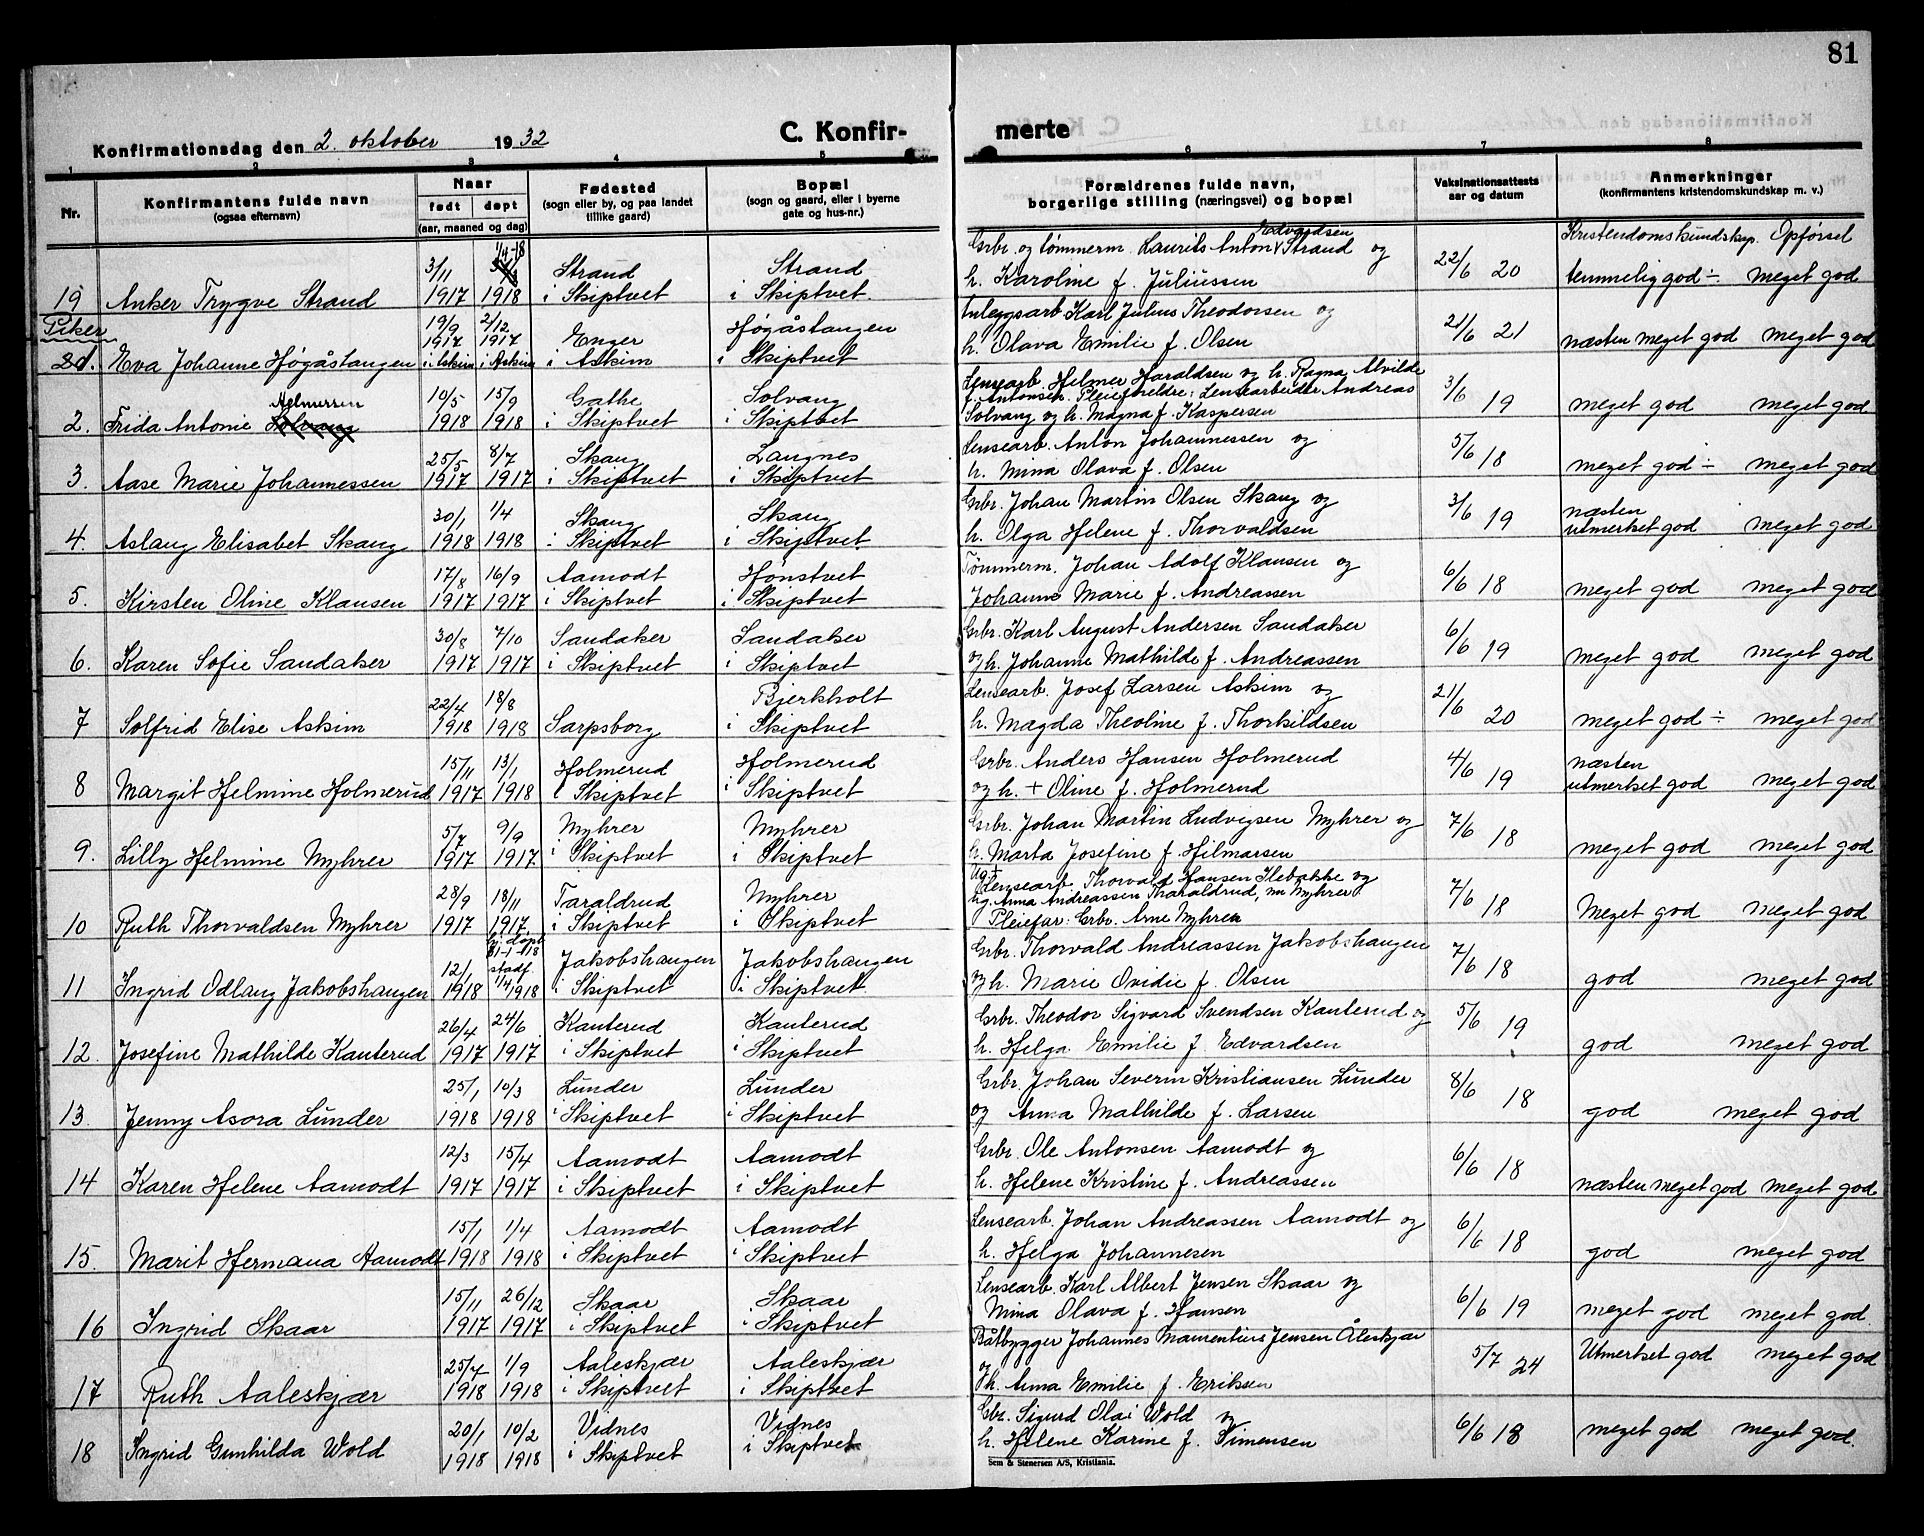 81
Konfirmationsdag den 2. oktober 1932
C. Konfir-
merte
1 2 3 4 5 6 7 8
Nr.
Konfirmantens fulde navn
(ogsaa efternavn)
Naar
født døpt
(aar, maaned og dag)
Fødested
(sogn eller by, og paa landet
tillike gaard)
Bopæl
(sogn og gaard, eller i byerne
gate og hus-nr.)
Forældrenes fulde navn,
borgerlige stilling (næringsvei) og bopæl
Vaksinationsattests
aar og datum
Anmerkninger
(konfirmantens kristendomskundskap m. v.)
Kristendomskundskap. Opførsel
3/11 1/4-18 Strand Strand Grbr. og tømmerm. Laurits Anton Edvardsen Strand og
19 Anker Trygve Strand 1917 1918 i Skiptvet i Skiptvet. h. Karoline f. Juliussen 22/6 20 temmelig god ÷ meget god
Piker
19/9 2/12 Enger Høgåstangen Anleggsarb. Karl Julius Theodorsen og
1. Eva Johanne Høgåstangen 1917 i Askim 1917 i Askim i Askim i Skiptvet h. Olava Emilie f. Olsen 21/6 21 næsten meget god meget god
10/5 15/9 Solvang Lensearb. Helmer Haraldsen og h. Ragna Alvilde
f. Antonsen. Pleieforeldre: Lensearbeider Andreas
2. Frida Antonie 1918 1918 i Skiptvet i Skiptvet Solvang og h. Magna f. Kaspersen 3/6 19 meget god meget god
25/5 8/7 Skaug Langnes Lensearb. Anton Johannessen og
3. Aase Marie Johannessen 1917 1917 i Skiptvet i Skiptvet h. Mina Olava f. Olsen 5/6 18 meget god ÷ meget god
30/1 1/4 Skaug Skaug Grbr. Johan Martin Olsen Skaug og næsten
4. Aslaug Elisabet Skaug 1918 1918 i Skiptvet i Skiptvet. h. Olga Helene f. Thorvaldsen 3/6 19 utmerket god meget god
17/8 16/9 Aamodt Hønstvet Tømmerm. Johan Adolf Klausen og
5. Kirsten Oline Klausen 1917 1917 i Skiptvet i Skiptvet Johanne Marie f. Andreassen 6/6 18 meget god meget god
30/8 7/10 Sandaker Sandaker Grbr. Karl August Andersen Sandaker
6. Karen Sofie Sandaker 1917 1917 i Skiptvet i Skiptvet og h. Johanne Mathilde f. Andreassen 6/6 19 meget god meget god
22/4 18/8 Bjerkholt Lensearb. Josef Larsen Askim og
7 Solfrid Elise Askim 1918 1918 Sarpsborg i Skiptvet h. Magda Theoline f. Thorkildsen 21/6 20 meget god ÷ meget god
15/11 13/1 Holmerud Holmerud Grbr. Anders Hansen Holmerud næsten
8 Margit Helmine Holmerud 1917 1918 i Skiptvet i Skiptvet og h. + Oline f. Holmerud 4/6 19 utmerket god meget god
5/7 9/9 Myhrer Myhrer Grbr. Johan Martin Ludvigsen Myhrer og
9. Lilly Helmine Myhrer 1917 1917 i Skiptvet i Skiptvet h. Marta Josefine f. Hilmarsen 7/6 18 meget god meget god
28/9 18/11 Taraldrud Myhrer Lensearb. Thorvald Hansen Ilebakke og
ug. Anna Andreassen Tharaldrud, nu Myhrer
10 Ruth Thorvaldsen Myhrer 1917 1917. i Skiptvet i Skiptvet Pleiefar: Grbr. Arne Myhrer 7/6 18 Meget god meget god
12/1 hj. døpt stadf. Jakobshaugen Jakobshaugen Grbr. Thorvald Andreassen Jakobshaugen
11 Ingrid Odlaug Jakobshaugen 1918 1/4 1918 i Skiptvet i Skiptvet. og h. Marie Ovidie f. Olsen 7/6 18 god meget god
26/4 24/6 Kanterud Kanterud Grbr. Theodor Sigvard Svendsen Kanterud og
12. Josefine Mathilde Kanterud 1917 1917 i Skiptvet i Skiptvet h. Helga Emilie f. Edvardsen 5/6 19 god meget god
25/1 10/3 Lunder Lunder Grbr. Johan Severin Kristiansen Lunder
13. Jenny Asora Lunder 1918 1918 i Skiptvet i Skiptvet og Anna Mathilde f. Larsen 8/6 18 god meget god
12/3 15/4 Aamodt Aamodt Grbr. Ole Antonsen Aamodt og
14 Karen Helene Aamodt 1917 1917 i Skiptvet i Skiptvet h. Helene Kristine f. Andreassen 6/6 18 næsten meget god meget god
15/1 1/4 Aamodt Aamodt Lensearb. Johan Andreassen Aamodt og
15. Marit Hermana Aamodt 1918 1918 i Skiptvet i Skiptvet h. Helga Johannesen 6/6 18 god meget god
15/11 26/12 Skaar Skaar Lensearb. Karl Albert Jensen Skaar og
16 Ingrid Skaar 1917 1917 i Skiptvet i Skiptvet Mina Olava f. Hansen 6/6 19 meget god meget god
25/4 1/9 Aaleskjær Aaleskjær Båtbygger Johannes Mamentius Jensen Åleskjær
17 Ruth Aaleskjær 1918 1918 i Skiptvet i Skiptvet og h. Anna Emilie f. Eriksen 5/7 24 Utmerket god meget god
20/1 10/2 Vidnes Vidnes Gbr. Sigurd Olai Wold og
18 Ingrid Gunhilda Wold 1918 1918 i Skiptvet i Skiptvet h. Helene Karine f. Simensen 6/6 18 meget god meget god.
Sem & Stenersen A/S, Kristiania.